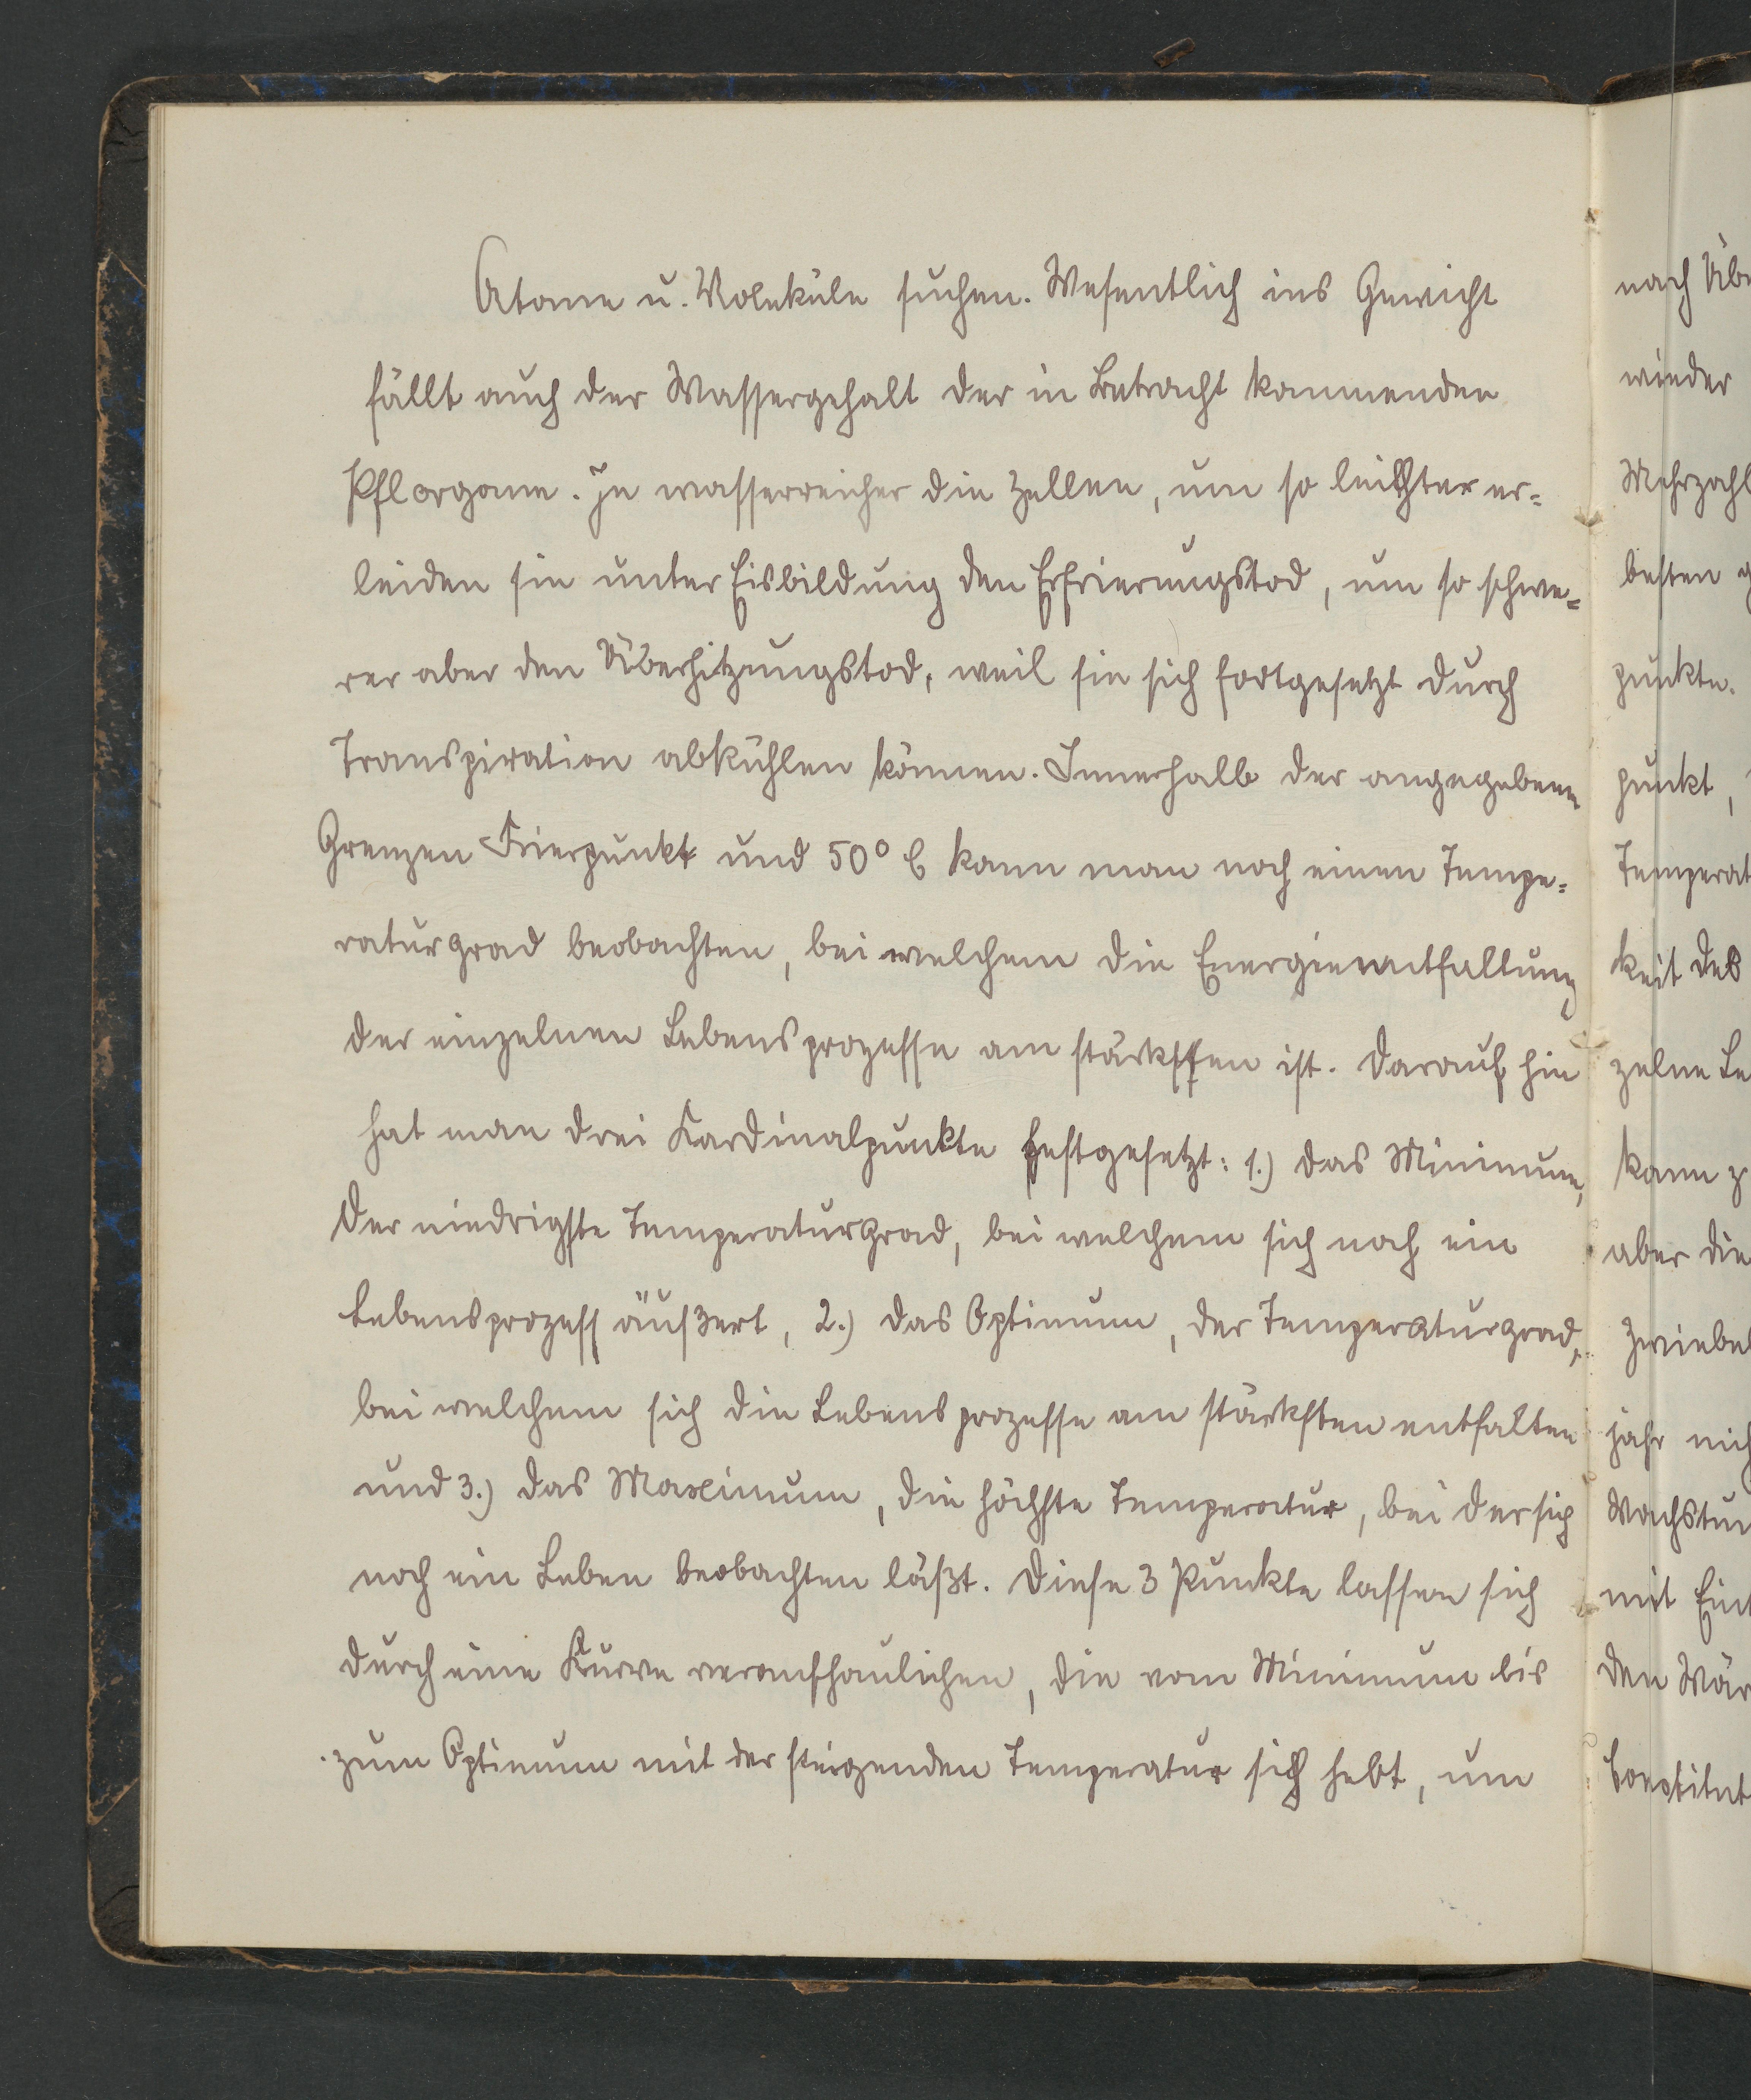 Atome u. Moleküle suchen. Wesentlich ins Gewicht
fällt auch der Wassergehalt der in Betracht kommenden
Pflorgane. Je wasserreicher die Zellen, um so leichter er-
leiden sie unter Eisbildung den Erfrierungstod, um so schwe-
rer aber den Überhitzungstod, weil sie sich fortgesetzt durch
Transpiration abkühlen können. Innerhalb der angegebenen
Grenzen Frierpunkt und 50° C kann man noch einen Tempe-
raturgrad beobachten, bei welchem die Energieentfaltung
der einzelnen Lebensprozesse am stärksten ist. Darauf hin
hat man drei Kardinalpunkte festgesetzt: 1.) das Minimum,
der niedrigste Temperaturgrad, bei welchem sich noch ein
Lebensprozess äußert, 2.) das Optimum, der Temperaturgrad,
bei welchem sich die Lebensprozesse am stärksten entfalten
und 3.) das Maximum, die höchste Temperatur, bei der sich
noch ein Leben beobachten läßt. Diese 3 Punkte lassen sich
durch eine Kurve veranschaulichen, die vom Minimum bis
zum Optimum mit der steigenden Temperatur sich hebt, um
nach Übe
wieder
Mehrzahl
besten g
punkte.
punkt,
Temperat
keit des
zelne Le
kann z
aber die
Zwiebel
jahr nich
Wachstum
mit Eint
den Wär
Constitut